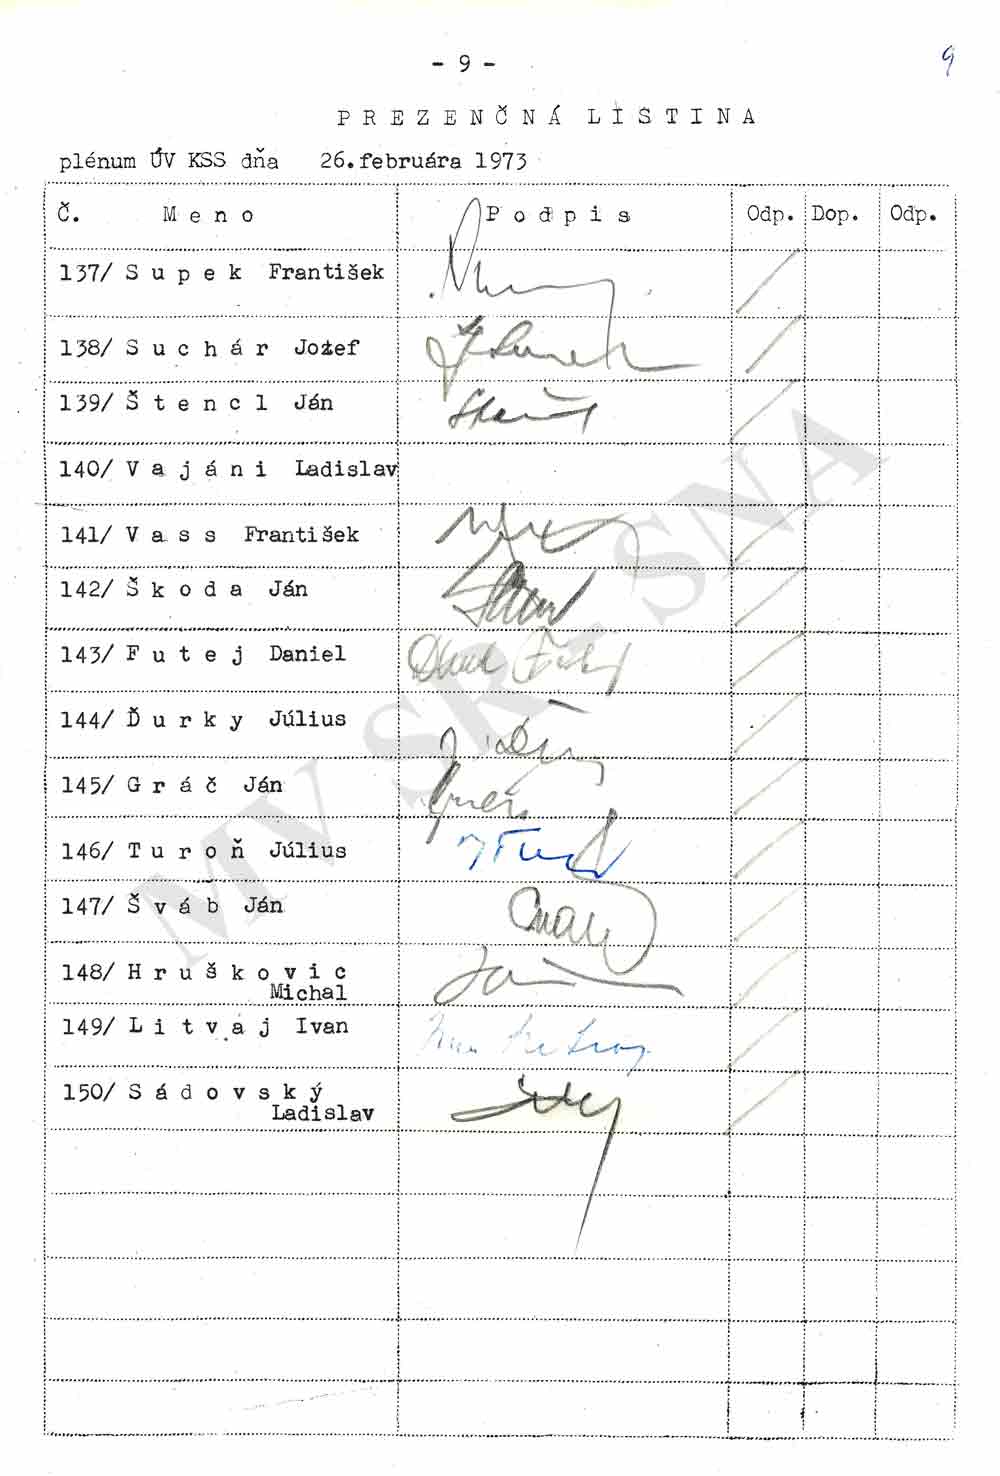 - 9 -
9
P R E Z E N Č N Á L I S T I N A
plénum ÚV KSS dňa 26.februára 1973
Č. M e n o P o d p i s Odp. Dop. Odp.
137/ S u p e k František
138/ S u c h á r Jozef
139/ Š t e n c l Ján
140/ V a j á n i Ladislav
141/ V a s s František
142/ Š k o d a Ján
143/ F u t e j Daniel
144/ Ď u r k y Július
145/ G r á č Ján
146/ T u r o ň Július
147/ Š v á b Ján
148/ H r u š k o v i c
Michal
149/ L i t v a j Ivan
150/ S á d o v s k ý
Ladislav
MV SR - SNA